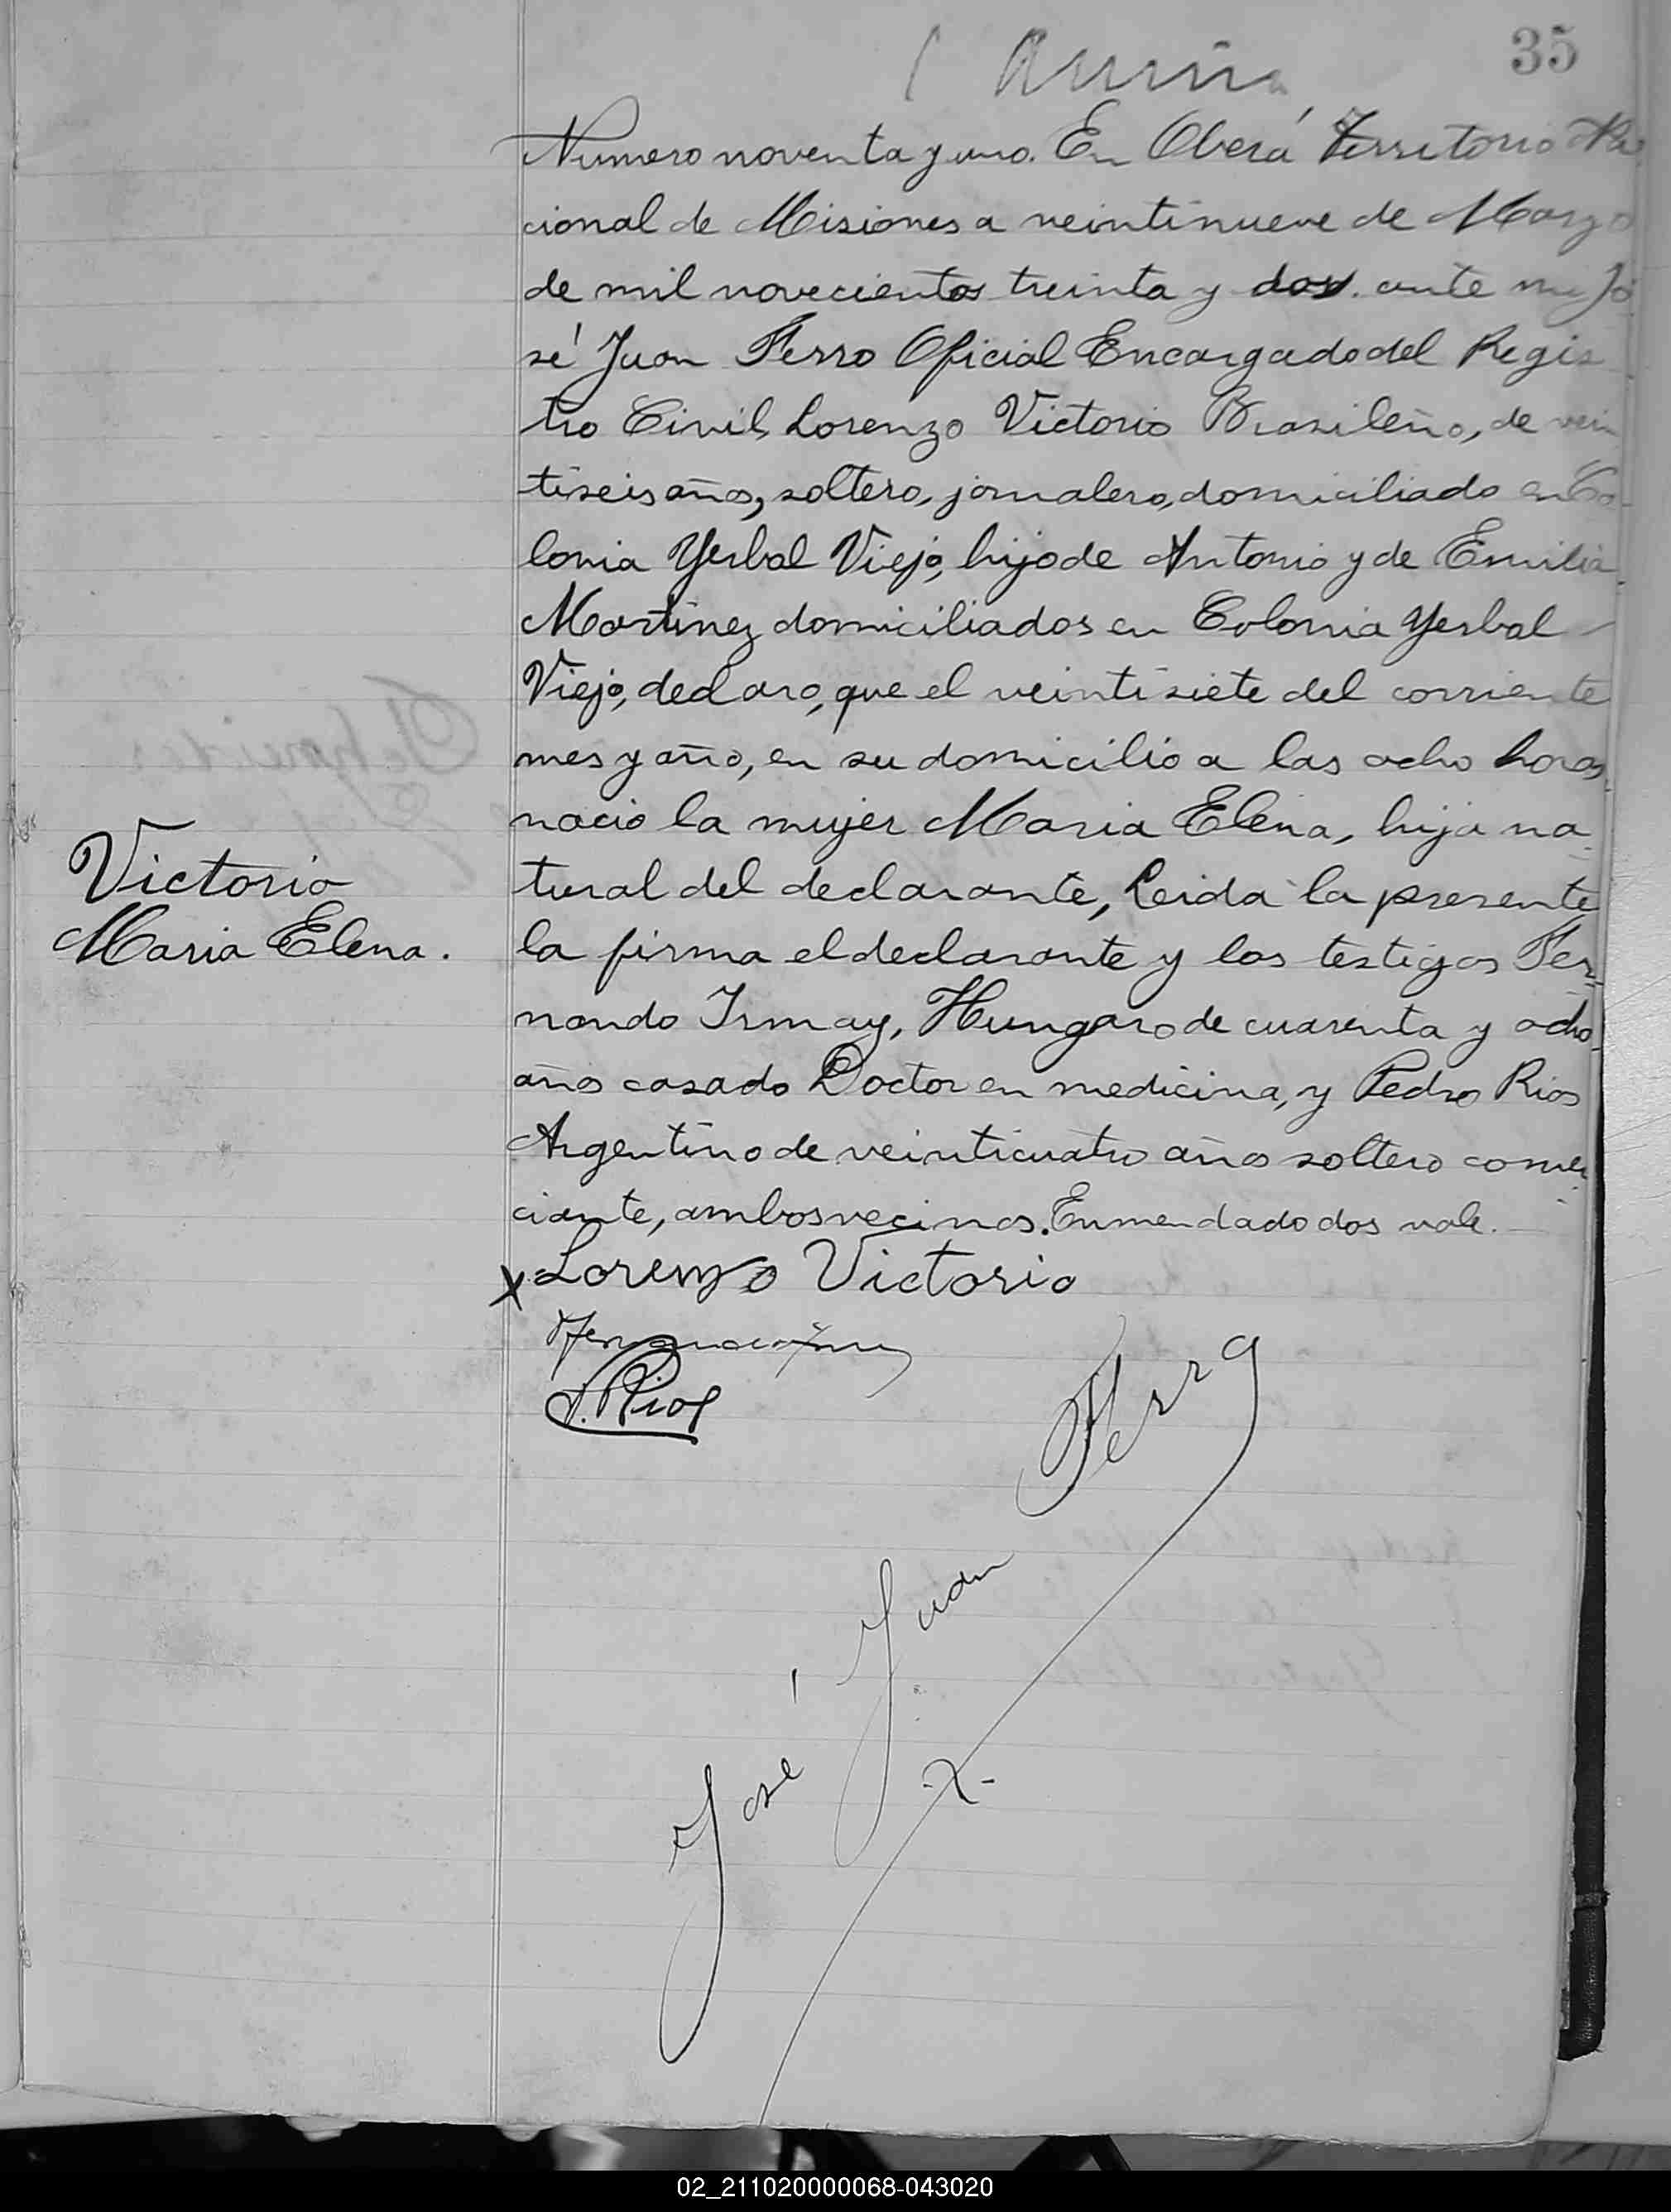 35
Numero noventa y uno. En Oberá Territorio Na
cional de Misiones a veintinueve de Marzo
de mil novecientos treinta y dos. ante mi Jo
sé Juan Ferro Oficial Encargado del Regis
tro Civil, Lorenzo Victorio Brasileño, de vein
tiseis años, soltero, jornalero, domiciliado en Co
lonia Yerbal Viejo, hijo de Antonio y de Emilia
Martinez domiciliados en Colonia Yerbal
Viejo, declaro, que el veintisiete del corriente
mes y año, en su domicilio a las ocho horas
nació la mujer Maria Elena, hija na
Victorio
Maria Elena.
tural del declarante, Leida la presente
la firma el declarante y los testigos Fer
nando Irmay, Hungaro de cuarenta y ocho
años casado Doctor en medicina, y Pedro Rios
Argentino de veinticuatro años soltero comer
ciante, ambos vecinos. Enmendado dos vale.
x Lorenzo Victorio
P. Rios
José Juan Ferro
02_211020000068-043020